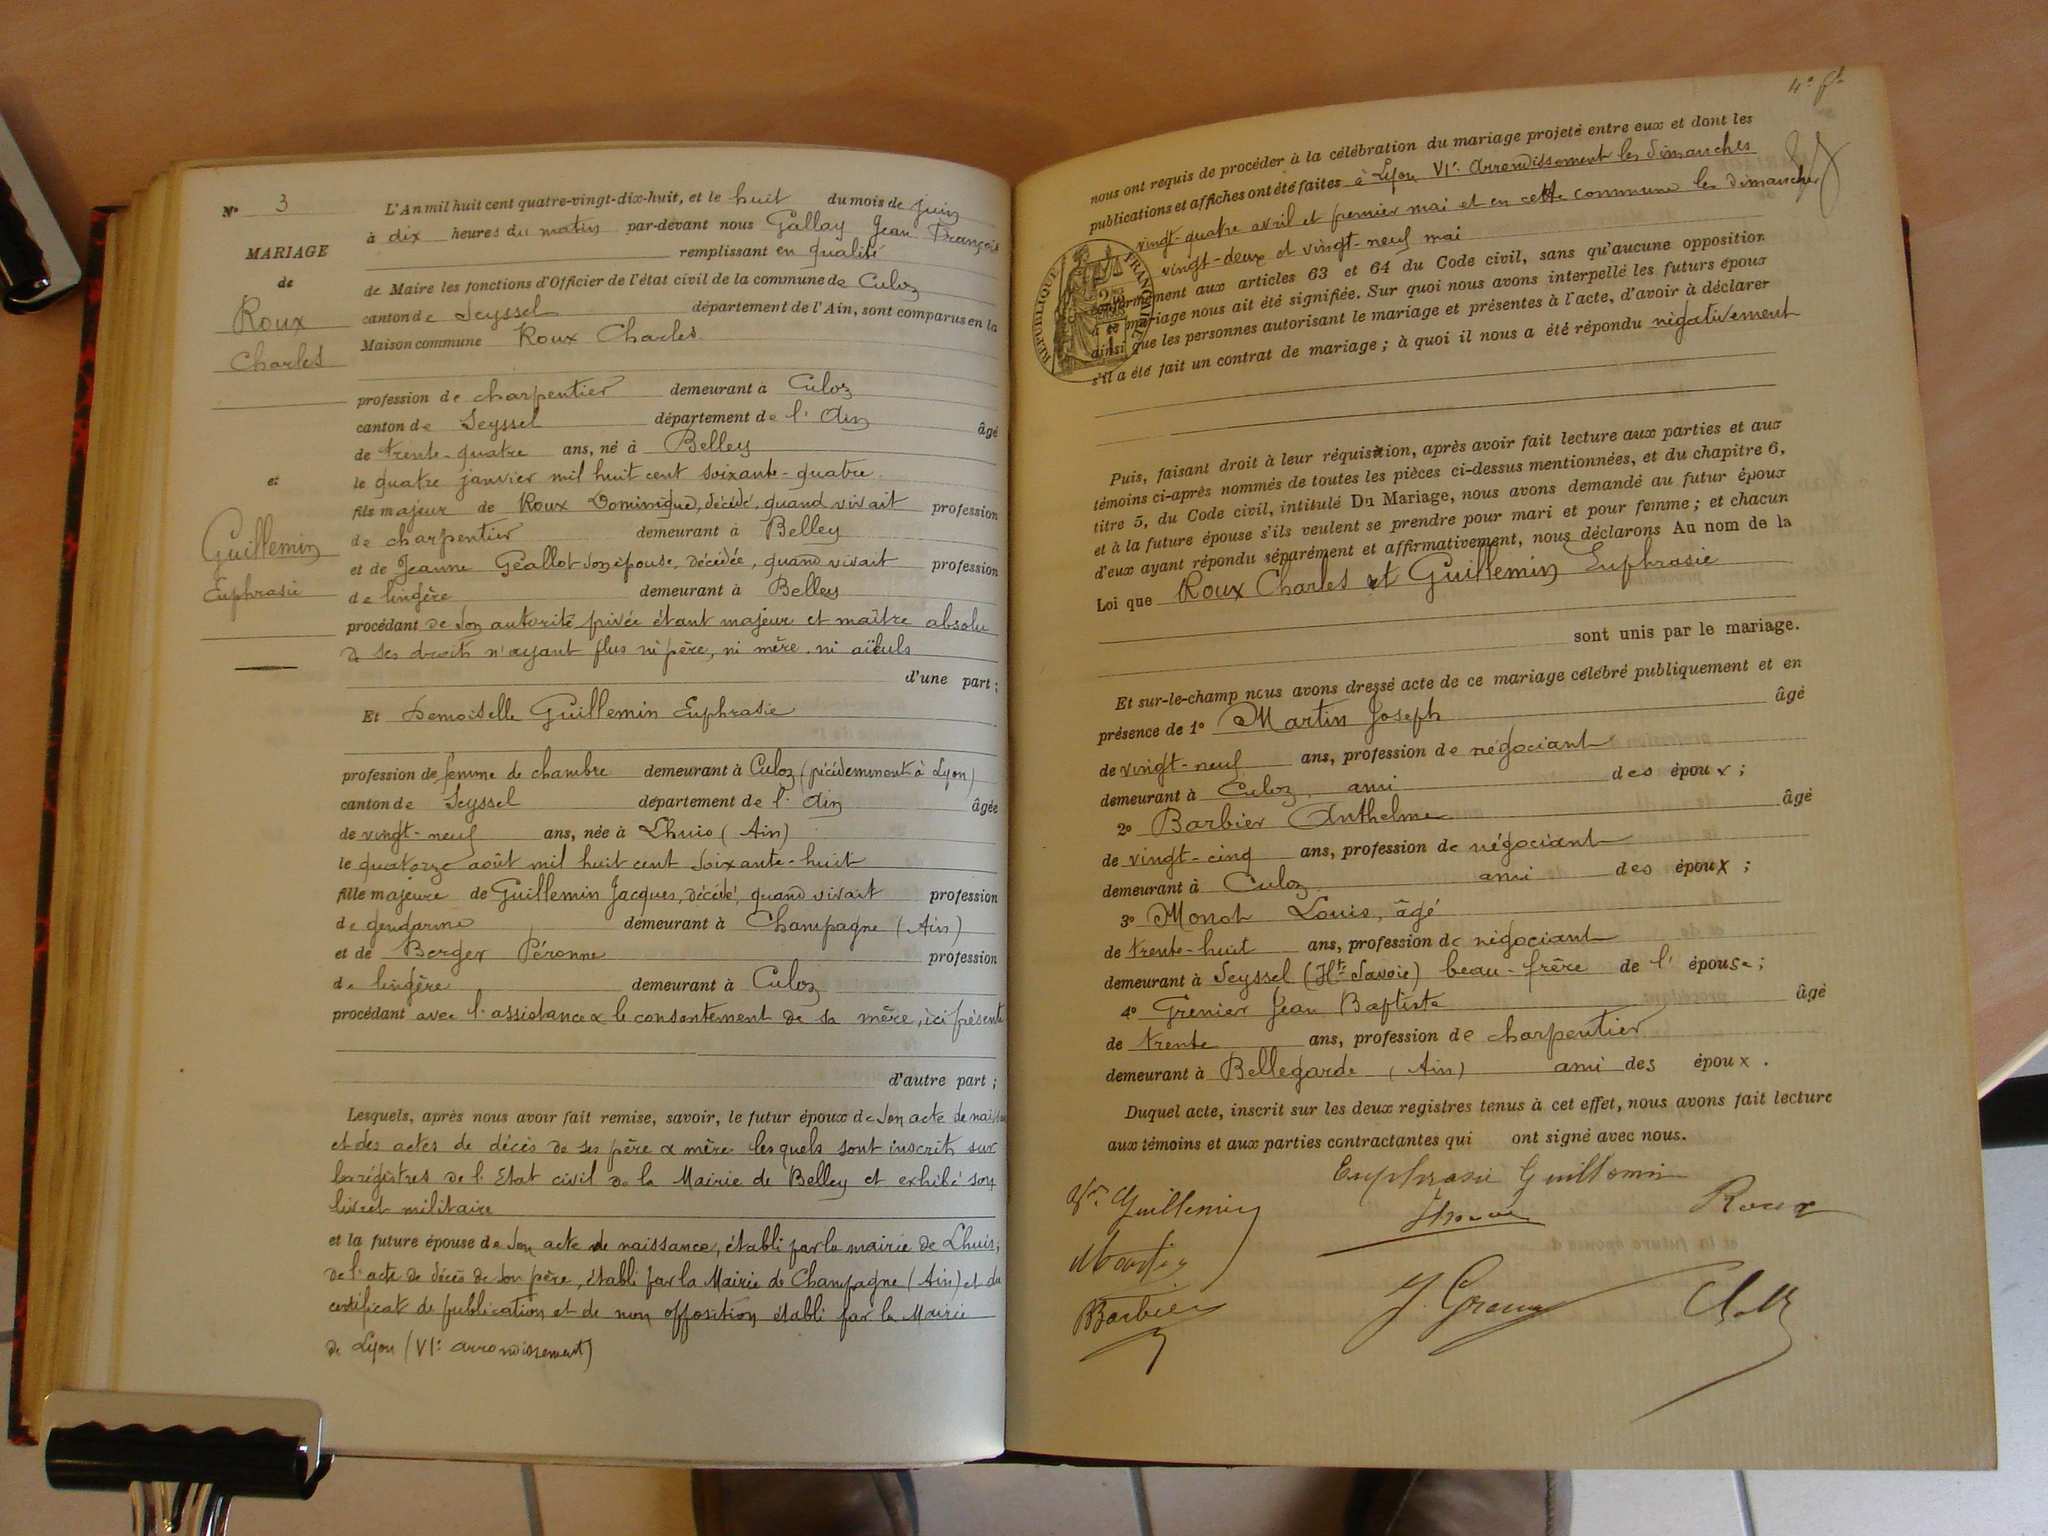 N° 3
MARIAGE
de
Roux
Charles
et
Guillemin
Euphrasie
L'An mil huit cent quatre-vingt-dix-huit, et le huit du mois de Juin
à dix heures du matin par-devant nous Gallay Jean François
remplissant en qualité
de Maire les fonctions d'Officier de l'état civil de la commune de Culoz
canton de Seyssel département de l'Ain, sont comparus en la
Maison commune Roux Charles
profession de charpentier demeurant à Culoz
canton de Seyssel département de l'Ain âgé
de trente-quatre ans, né à Belley
le quatre janvier mil huit cent soixante-quatre
fils majeur de Roux Dominique, décédé, quand vivait profession
de charpentier demeurant à Belley
et de Jeanne Géallot son épouse, décédée, quand vivait profession
de lingère demeurant à Belley
procédant de son autorité privée étant majeur et maître absolu
de ses droits n'ayant plus ni père, ni mère, ni aïeuls
d'une part;
Et Demoiselle Guillemin Euphrasie
profession de femme de chambre demeurant à Culoz (précédemment à Lyon)
canton de Seyssel département de l'Ain âgée
de vingt-neuf ans, née à Lhuis (Ain)
le quatorze août mil huit cent soixante-huit
fille majeure de Guillemin Jacques, décédé, quand vivait profession
de gendarme demeurant à Champagne (Ain)
et de Berger Péronne profession
de lingère demeurant à Culoz
procédant avec l'assistance & le consentement de sa mère, ici présente
d'autre part;
Lesquels, après nous avoir fait remise, savoir, le futur époux de son acte de
et des actes de décès de ses père & mère lesquels sont inscrits sur
les régistres de l'Etat civil de la Mairie de Belley et exhibé son
livret militaire
et la future épouse de son acte de naissance, établi par la mairie de Lhuis;
de l'acte de décès de son père, établi par la Mairie de Champagne (Ain) et du
certificat de publication et de non opposition établi par la Mairie
de Lyon (VIe arrondissement)
nous ont requis de procéder à la célébration du mariage projeté entre eux et dont les
publications et affiches ont été faites à Lyon VIe Arrondissement les dimanches
vingt-quatre avril et premier mai et en cette commune les dimanches
vingt-deux et vingt-neuf mai
REPUBLIQUE FRANÇAISE
conformément aux articles 63 et 64 du Code civil, sans qu'aucune opposition
à ce mariage nous ait été signifiée. Sur quoi nous avons interpellé les futurs époux
ainsi que les personnes autorisant le mariage et présentes à l'acte, d'avoir à déclarer
s'il a été fait un contrat de mariage; à quoi il nous a été répondu négativement
Puis, faisant droit à leur réquisition, après avoir fait lecture aux parties et aux
témoins ci-après nommés de toutes les pièces ci-dessus mentionnées, et du chapitre 6,
titre 5, du Code civil, intitulé Du Mariage, nous avons demandé au futur époux
et à la future épouse s'ils veulent se prendre pour mari et pour femme; et chacun
d'eux ayant répondu séparément et affirmativement, nous déclarons Au nom de la
Loi que Roux Charles et Guillemin Euphrasie
sont unis par le mariage.
Et sur-le-champ nous avons dressé acte de ce mariage célébré publiquement et en
présence de 1° Martin Joseph âgé
de vingt-neuf ans, profession de négociant
demeurant à Culoz ami des époux;
2° Barbier Anthelme âgé
de vingt-cinq ans, profession de négociant
demeurant à Culoz ami des époux;
3° Monot Louis, âgé
de trente-huit ans, profession de négociant
demeurant à Seyssel (Hte Savoie) beau-frère de l'épouse;
4° Grenier Jean Baptiste âgé
de trente ans, profession de charpentier
demeurant à Bellegarde (Ain) ami des époux.
Duquel acte, inscrit sur les deux registres tenus à cet effet, nous avons fait lecture
aux témoins et aux parties contractantes qui ont signé avec nous.
Euphrasie Guillemin
Vve Guillemin
Roux
Martin
Barbier